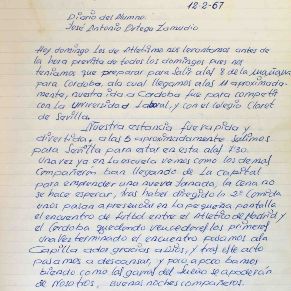 12-2-67
Diario del Alumno.
José Antonio Ortega Zamudio
Hoy domingo los de Atletismo nos levantamos antes de
la hora prevista de todos los domingos pues nos
teniamos que preparar para salir a las 8 de la mañana
para Cordoba a la cual llegamos a las 11 aproximada-
mente, nuestra ida a Cordoba fue para competir
con la universidad Laboral, y con el colegio Claret
de Sevilla.
Nuestra estancia fue rapida y
divertida, a las 5 aproximadamente salimos
para Sevilla para estar en esta a las 7'30.
Una vez ya en la escuela vemos como los demas
Compañeros ban llegando de la capital
para emprender una nueva Jornada, la cena no
se hace esperar, tras haber dirigido la 2ª Comida
unos pasan a presencia en la pequeña pantalla
el encuentro de futbol entre el Atletico de Madrid y
el Cordoba quedando vencedores los primeros
una vez terminado el encuentro pasamos a la
Capilla a dar gracias a Dios, y tras este acto
pasamos a descansar, y poco a poco bamos
biendo como las garras del sueño se apoderan
de nosotros, buenas noches compañeros.